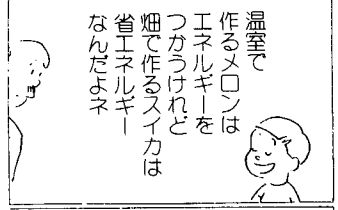 温室で
作るメロンは
エネルギーを
つかうけれど
畑で作るスイカは
省エネルギー
なんだよネ